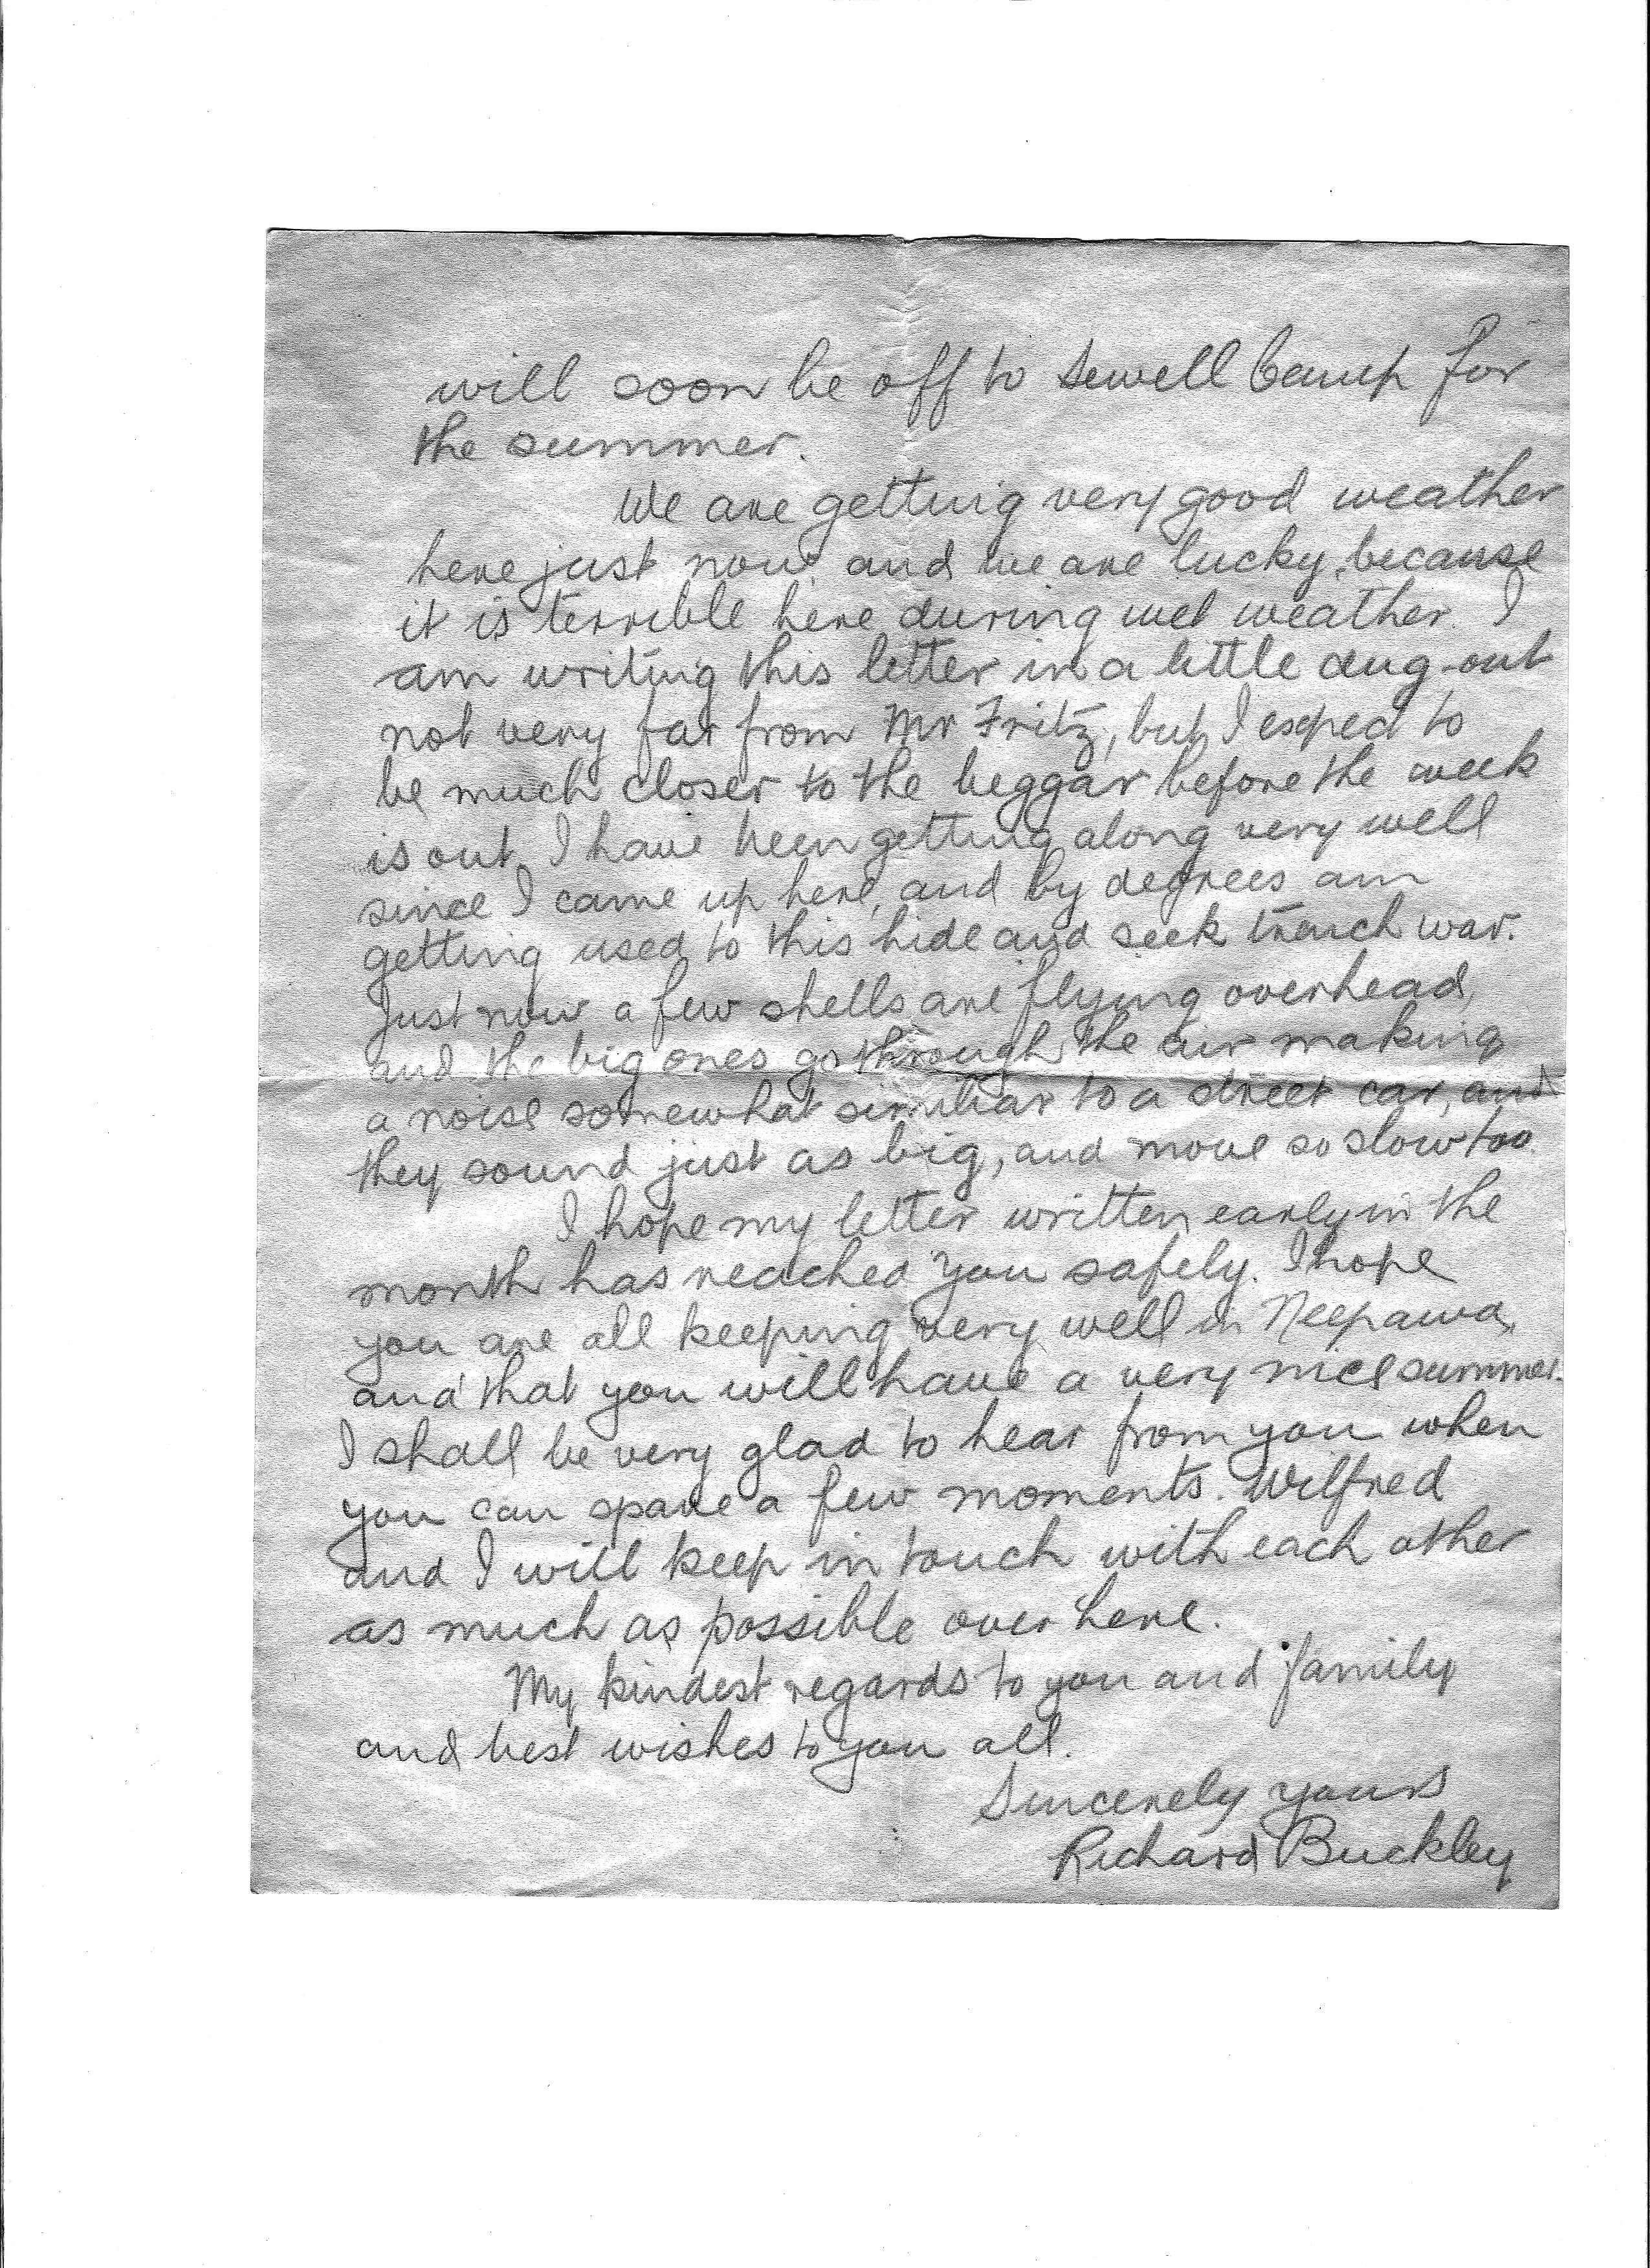 will soon be off to Sewell Camp for
the summer.
We are getting very good weather
here just now and we are lucky, because
it is terrible here during wet weather. I
am writing this letter in a little dug-out
not very far from Mr Fritz, but I expect to
be much closer to the beggar before the week
is out. I have been getting along very well
since I came up here, and by degrees am
getting used to this hide and seek trench war.
Just now a few shells are flying overhead,
and the big ones go through the air making
a noise somewhat similiar to a street car, and
they sound just as big, and move so slow too.
I hope my letter written early in the
month has reached you safely. I hope
you are all keeping very well in Neepawa,
and that you will have a very nice summer.
I shall be very glad to hear from you when
you can spare a few moments. Wilfred
and I will keep in touch with each other
as much as possible over here.
My kindest regards to you and family
and best wishes to you all.
Sincerely yours
Richard Buckley